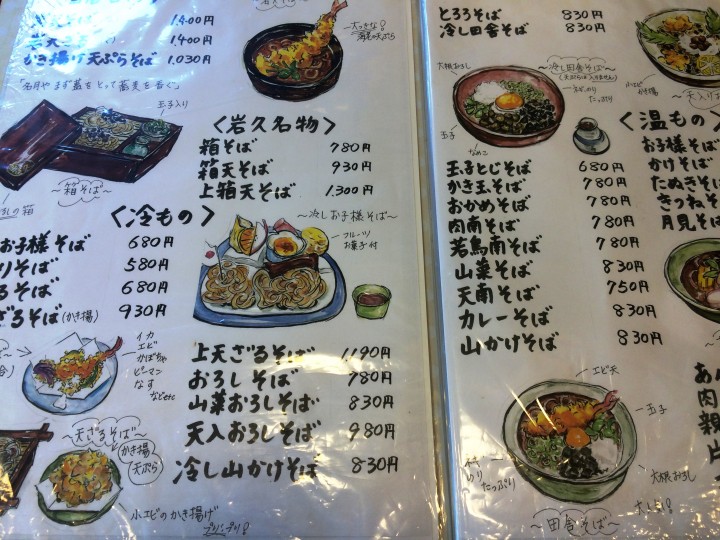 1,400円
1,400円
かき揚げ天ぷらそば 1,030円
玉子入り
〜箱そば〜
の箱
〈岩久名物〉
箱そば 780円
箱天そば 930円
上箱天そば 1,300円
〈冷もの〉
お子様そば 680円
りそば 580円
るそば 680円
ざるそば(かき揚) 930円
〜冷しお子様そば〜
フルーツ
お菓子付
イカ
エビ
かぼちゃ
ピーマン
なす
などetc
〜天ざるそば〜
かき揚
天ぷら
小エビのかき揚げ
プリップリ!
上天ざるそば 1,190円
おろしそば 780円
山菜おろしそば 830円
天入おろしそば 980円
冷し山かけそば 830円
とろろそば 830円
冷し田舎そば 830円
大根おろし
〜冷し田舎そば〜
(天ぷらは入りません)
たっぷり
玉子
なめこ
小エビ
かき揚
〜天入り
玉子とじそば 680円
かき玉そば 780円
おかめそば 780円
肉南そば 780円
若鳥南そば 780円
山菜そば 830円
天南そば 750円
カレーそば 830円
山かけそば 830円
〈温もの
お子様そば
かけそば
たぬきそば
きつねそ
月見そば
エビ天
玉子
大根おろし
たっぷり
〜田舎そば〜
あん
肉
親